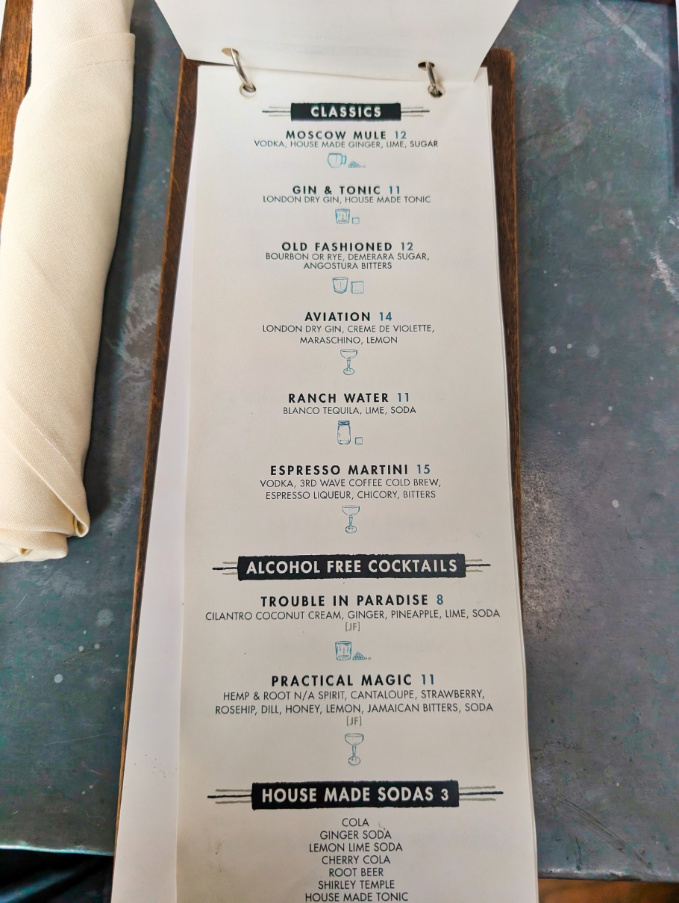 CLASSICS
MOSCOW MULE 12
VODKA, HOUSE MADE GINGER, LIME, SUGAR
GIN & TONIC 11
LONDON DRY GIN, HOUSE MADE TONIC
OLD FASHIONED 12
BOURBON OR RYE, DEMERARA SUGAR,
ANGOSTURA BITTERS
AVIATION 14
LONDON DRY GIN, CREME DE VIOLETTE,
MARASCHINO, LEMON
RANCH WATER 11
BLANCO TEQUILA, LIME, SODA
ESPRESSO MARTINI 15
VODKA, 3RD WAVE COFFEE COLD BREW,
ESPRESSO LIQUEUR, CHICORY, BITTERS
ALCOHOL FREE COCKTAILS
TROUBLE IN PARADISE 8
CILANTRO COCONUT CREAM, GINGER, PINEAPPLE, LIME, SODA
[JF]
PRACTICAL MAGIC 11
HEMP & ROOT N/A SPIRIT, CANTALOUPE, STRAWBERRY,
ROSEHIP, DILL, HONEY, LEMON, JAMAICAN BITTERS, SODA
[JF]
HOUSE MADE SODAS 3
COLA
GINGER SODA
LEMON LIME SODA
CHERRY COLA
ROOT BEER
SHIRLEY TEMPLE
HOUSE MADE TONIC